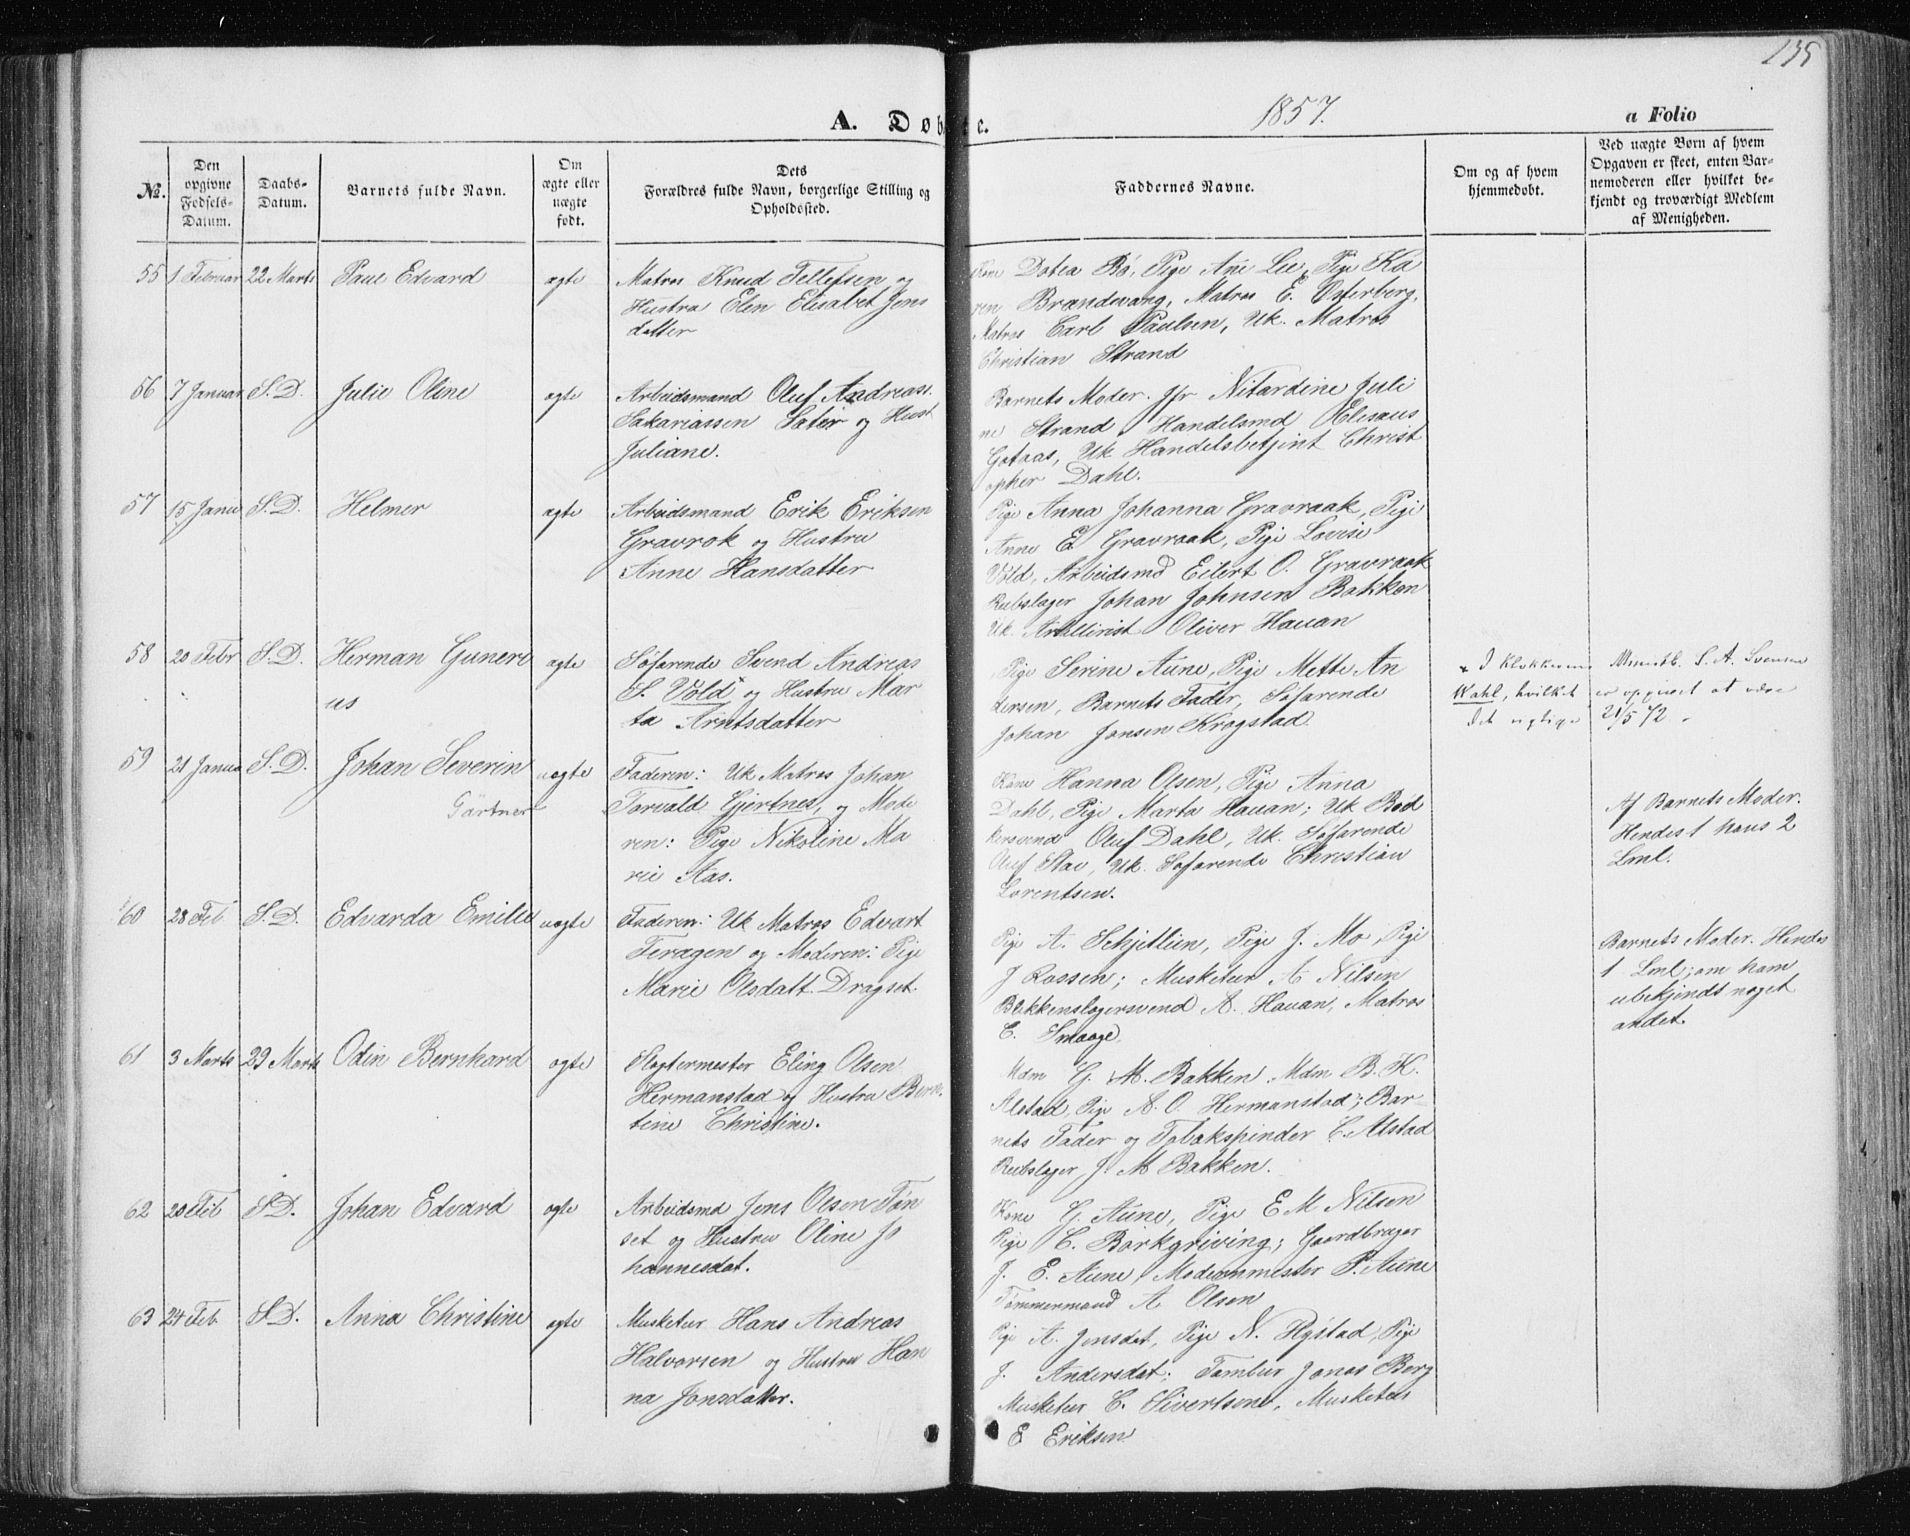 135
A. Døbte.
1857.
a Folio
№.
Den opgivne Fødsels-Datum.
Daabs-Datum.
Barnets fulde Navn.
Om ægte eller uægte født.
Dets Forældres fulde Navn, borgerlige Stilling og Opholdssted.
Faddernes Navne.
Om og af hvem hjemmedøbt.
Ved uægte Børn af hvem Opgaven er skeet, enten Barnemoderen eller hvilket bekjendt og troværdigt Medlem af Menigheden.
55 1 Februar 22 Marts Paul Edvard ægte
Matros Knud Tellefsen og
Hustru Elen Elisabet Jens
datter
Kone Dotea Bø, Pige Ane Lie, Pige Ka
ren Brændvang, Matros E. Østerberg,
Matros Carl Paulsen, Uk. Matros
Christian Strand
56 7 Januar S. D. Julie Oline ægte
Arbeidsmand Oluf Andreass.
Sakariassen Sæter og Hust
Juliane.
Barnets Moder. Jfr Nitardine Juli
ne Strand, Handelsmd Elisæus
Gotaas, Uk Handelsbetjent Christ
opher Dahl.
57 15 Janu S. D. Helmer ægte
Arbeidsmand Erik Eriksen
Gravrok og Hustru
Anne Hansdatter
Pige Anna Johanna Gravraak, Pige
Anne E. Gravraak, Pige Lovise
Vold, Arbeidsmd Eilert O. Gravraak
Rebslager Johan Johnsen Bakken
Uk. Artillerist Oliver Hauan
58 20 Febr S. D. Herman Guneri
us ægte
Søfarende Svend Andreas
S. Vold og Hustru Mar
ta Arntsdatter
Pige Serine Aune, Pige Mette An
dersen, Barnets Fader, Søfarende
Johan Jansen Krogstad.
I Klokkerens Minstbl. S. A. Svensen
Wahl, hvilket er opgivet at være
det rigtige 21/5 72
59 21 Janua S. D. Johan Severin uægte
Gärtner
Faderen: Uk Matros Johan
Torvald Gjertnes, og Mode
ren: Pige Nikoline Ma
rie Aas.
Kone Hanna Olsen, Pige Anna
Dahl, Pige Marta Hauan; Uk Bød
kersvend Oluf Dahl, Uk. Søfarende
Oluf Stav, Uk. Søfarende Christian
Lorentsen.
Af Barnets Moder.
Hendes 1 hans 2
Lml.
60 28 Feb S. D. Edvarda Emilie uægte
Faderen: Uk Matros Edvart
Feragen og Moderen: Pige
Marie Olsdatt. Dragset.
Pige A. Schjetlein, Pige J. Mo, Pige
J Rossen; Musketur A Nilsen
Blikkenslagersvend A. Hauan, Matros
C. Smaage.
Barnets Moder. Hendes
1 Lml; om ham
ubekjendt noget
andet.
61 3 Marts 29 Marts Odin Bernhard ægte
Slagtermester Eling Olsen
Hermanstad og Hustru Bern
tine Christine.
Mdm G. M. Bakken, Mdm B. K.
Alstad, Pige A. O. Hermanstad; Bar
nets Fader og Tobakspinder C. Alstad
Rebslager J. M Bakken.
62 20 Feb S D. Johan Edvard ægte
Arbeidsmd Jens Olsen Tøn
set og Hustru Oline Jo
hannesdat.
Kone G. Aune, Pige E M Nilsen
Pige C. Borkgriving; Gaardbruger
J. E. Aune, P. Aune
Tømmermand A Olsen
63 24 Feb. S. D. Anna Christine ægte
Musketur Hans Andreas
Halvorsen og Hustru Han
na Jonsdatter.
Pige A. Jonsdat, Pige N. Hystad, Pige
J. Andersdat; Tambur Jonas Berg
Musketur C. Sivertsen, Musketur
E Eriksen